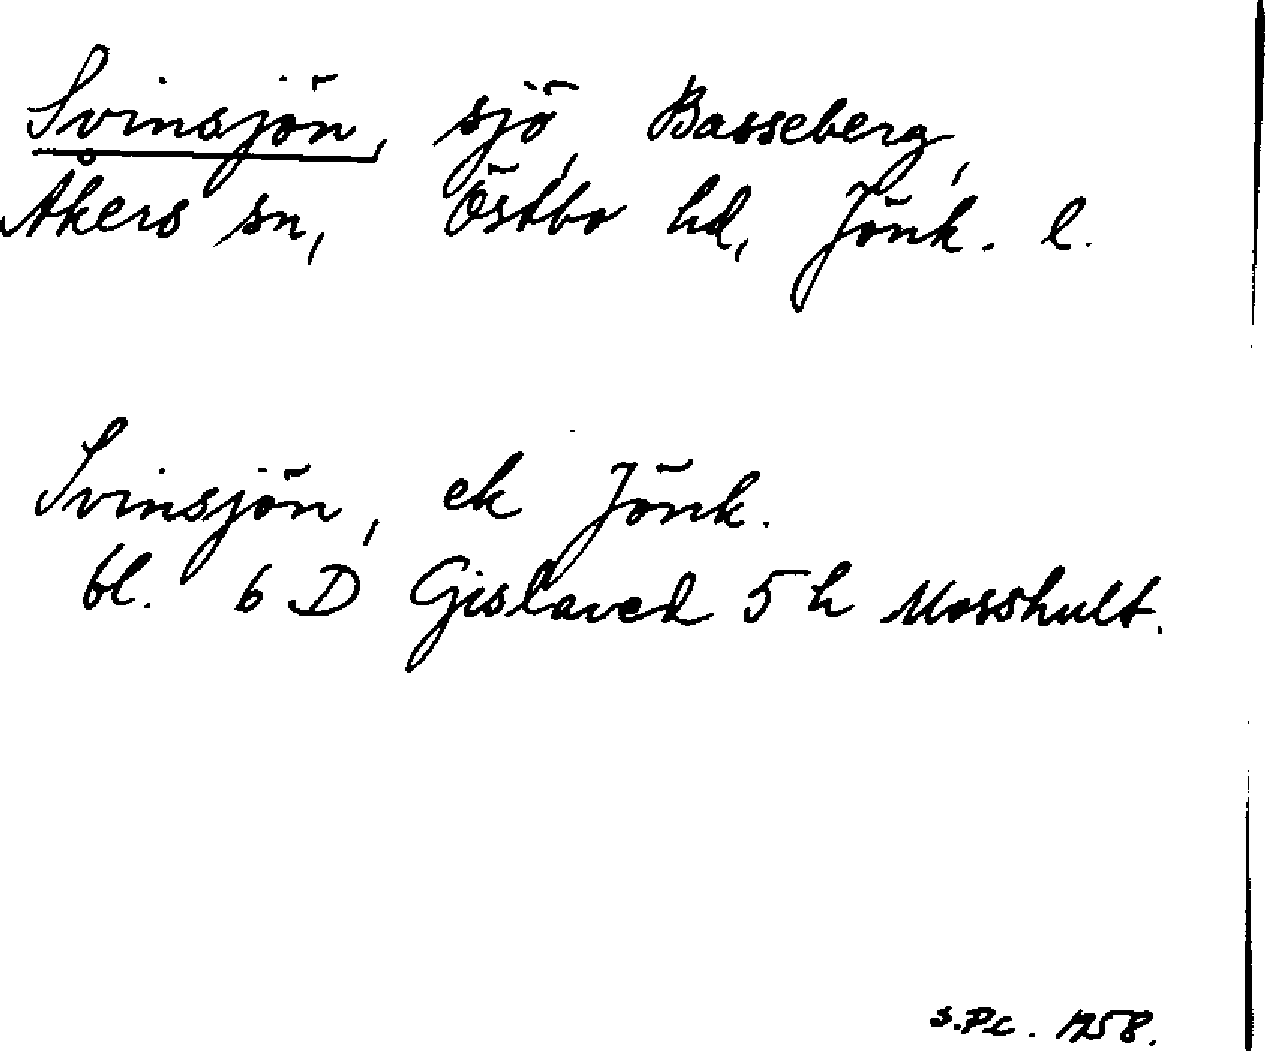 Svinsjön, sjö, Basseberg,
Åkers sn, Östbo hd, Jönk. l.
Svinsjön, ek Jönk.
bl. 6 D Gislaved 5 h Mosshult.
S.Pc. 1958.